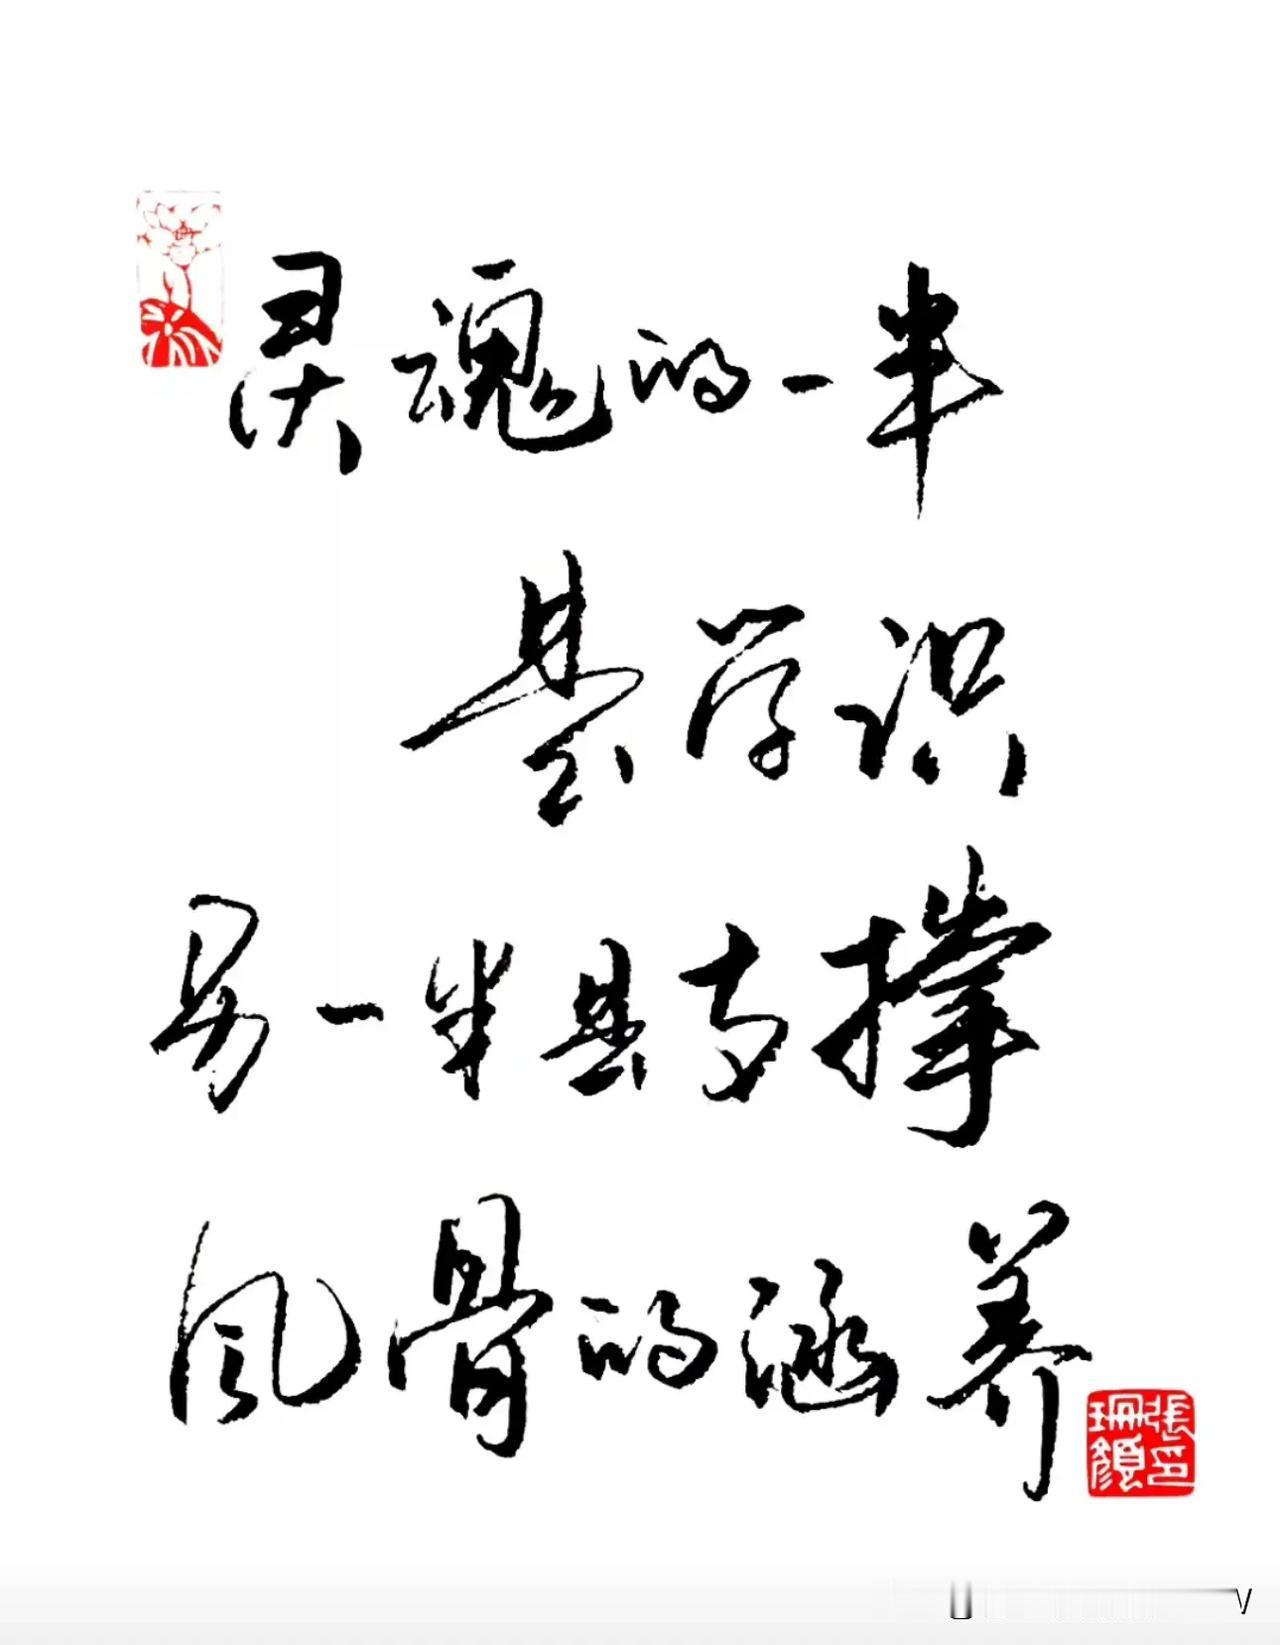 灵魂的一半
是学识
另一半是支撑
风骨的涵养
張印珊顏